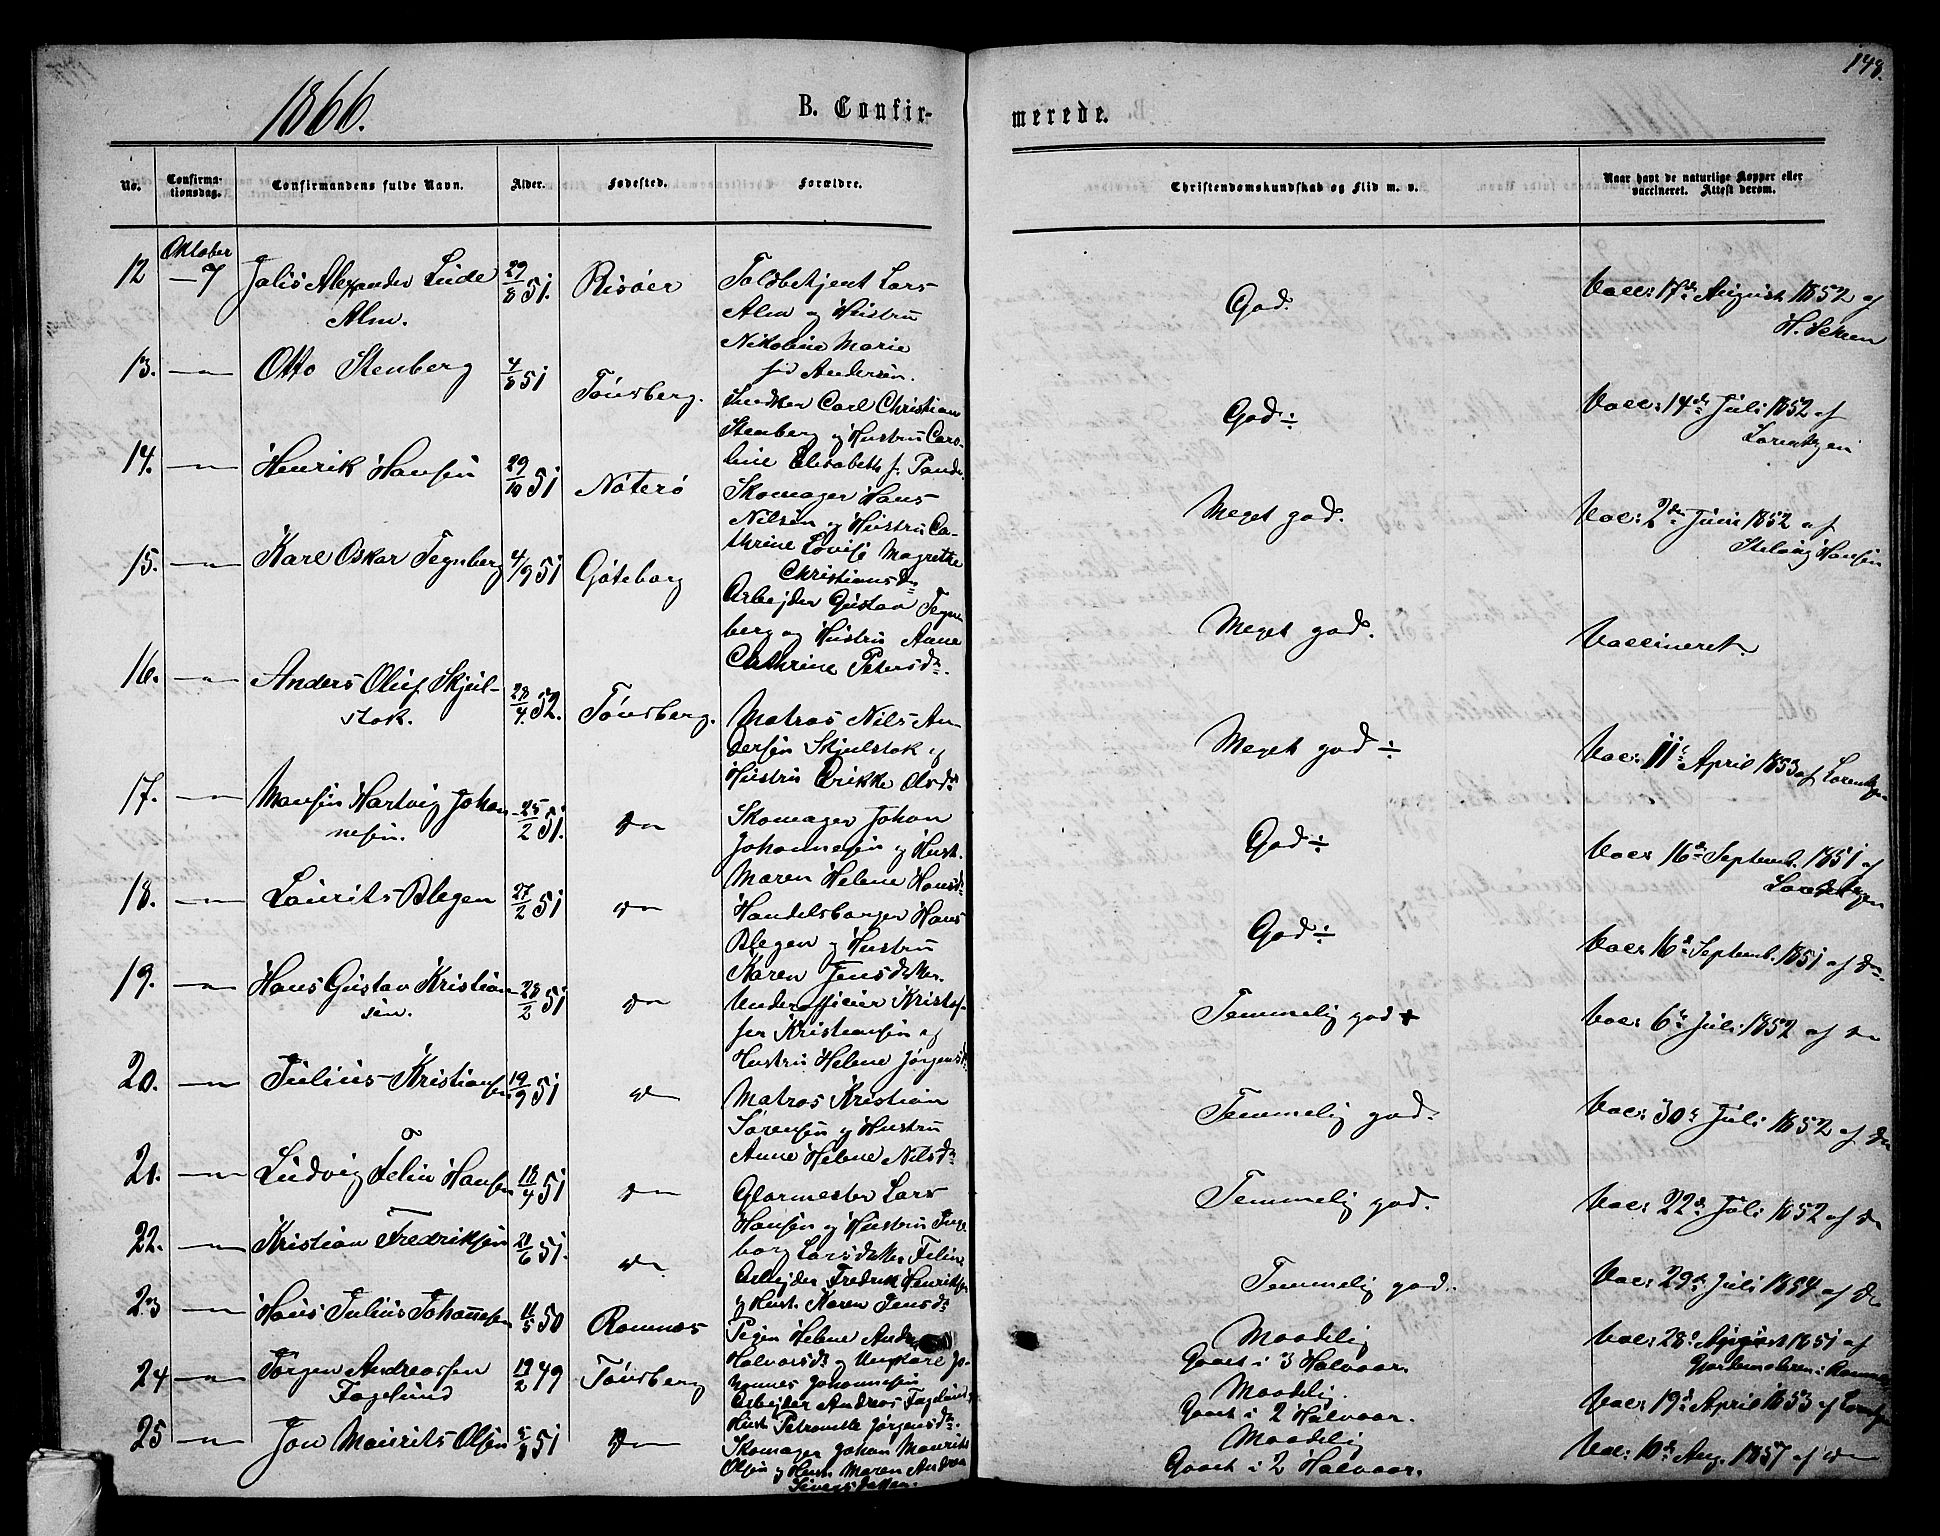 148.
1866.
B. Confir-
merede.
No.
Confirma-
tionsdag.
Confirmandens fulde Navn.
Alder.
Fødested.
Forældre.
Christendomskundskab og Flid m. v.
Naar havt de naturlige Kopper eller
vaccineret. Attest derom.
Oktober
12 — 7 Julis Alexander Lude 29/8 51. Risøer Toldbetjent Lars
Alm. Alm og Hustru
Nikoline Marie
fød Andersen.
God. Vacc: 17de August 1852 af
H.
13. —"— Otto Stenberg 4/8 51 Tønsberg. Snedker Carl Christian
Stenberg og Hustru Caro-
line Elisabeth f.
God ÷ Vacc: 14de Juli 1852 af
Lorentzen
14. —"— Henrik Hansen 29/10 51 Nøterø Skomager Hans
Nilsen og Hustru Ca-
thrine Lovise Magrethe
Christiansdr
Meget god. Vacc: 2den Juni 1852 af
Hansen
15. —"— Karl Oskar Tegnberg 4/9 51 Gøteborg Arbejder Gustav Tegn-
berg og Hustru Anne
Cathrine Petersdr.
Meget god. Vaccineret.
16. —"— Anders Oluf Skjul- 28/4 52. Tønsberg. Matros Nils An-
stok. dersen Skjulstok og
Hustru Erikke Olsdr
Meget god ÷ Vacc: 11te April 1853 af Lorentzen
17. —"— Hartvig Johan- 25/2 51. do Skomager Johan
nesen. Johannesen og Hust.
Maren Helene Hansdr
God ÷ Vacc 16de Septemb. 1851 af
Lorentzen
18. —"— Laurits Blegen 27/2 51 do Handelsborger Hans
Blegen og Hustru
Karen Jensdatter.
God ÷ Vacc 16de Septemb. 1851 af do.
19. —"— Hans Gustav Kristian- 28/2 51 do Underofficier Kristof-
sen. fer Kristiansen og
Hustru Helene Jørgensdr
Temmelig god + Vacc: 6te Juli 1852 af do
20. —"— Julius Kristiansen 19/9 51 do Matros Kristian
Sørensen og Hustru
Anne Helene Nilsdr
Temmelig god. Vacc: 30te Juli 1852 af do
21. —"— Ludvig Felin Hansen 18/4 51 do Glarmester Lars
Hansen og Hustru Inge-
borg Larsdatter Felin
Temmelig god. Vacc: 22de Juli 1852 af do
22. —"— Kristian Fredriksen 21/6 51. do Arbejder Fredrik Henriksen
og Hust. Karen Jensdr
Temmelig god. Vacc: 29de Juli 1854 af do
23 —"— Hans Julius Johannesen 11/5 50 Ramnæs Pigen Helene Andrea
Halvorsdr og Ungkarl Jo-
hannes Johannesen
Maadelig
Gaaet i 3 Halvaar.
Vacc: 28de August 1851 af
Gjordemoderen i Ramnæs
24 —"— Jørgen Andreassen 19/2 49 Tønsberg Arbejder Andreas Fagelund
Fagelund Hust. Petronelle Jørgensdr.
Maadelig.
Gaaet i 2 Halvaar.
Vacc: 19de April 1853 af Lorentzen
25 —"— Jon Maurits Olsen 5/8 51 do Skomager Johan Maurits
Olsen og Hust. Maren Andrea
Maadelig
Gaaet i 2 Halvaar.
Vac: 10de Aug. 1857 af do